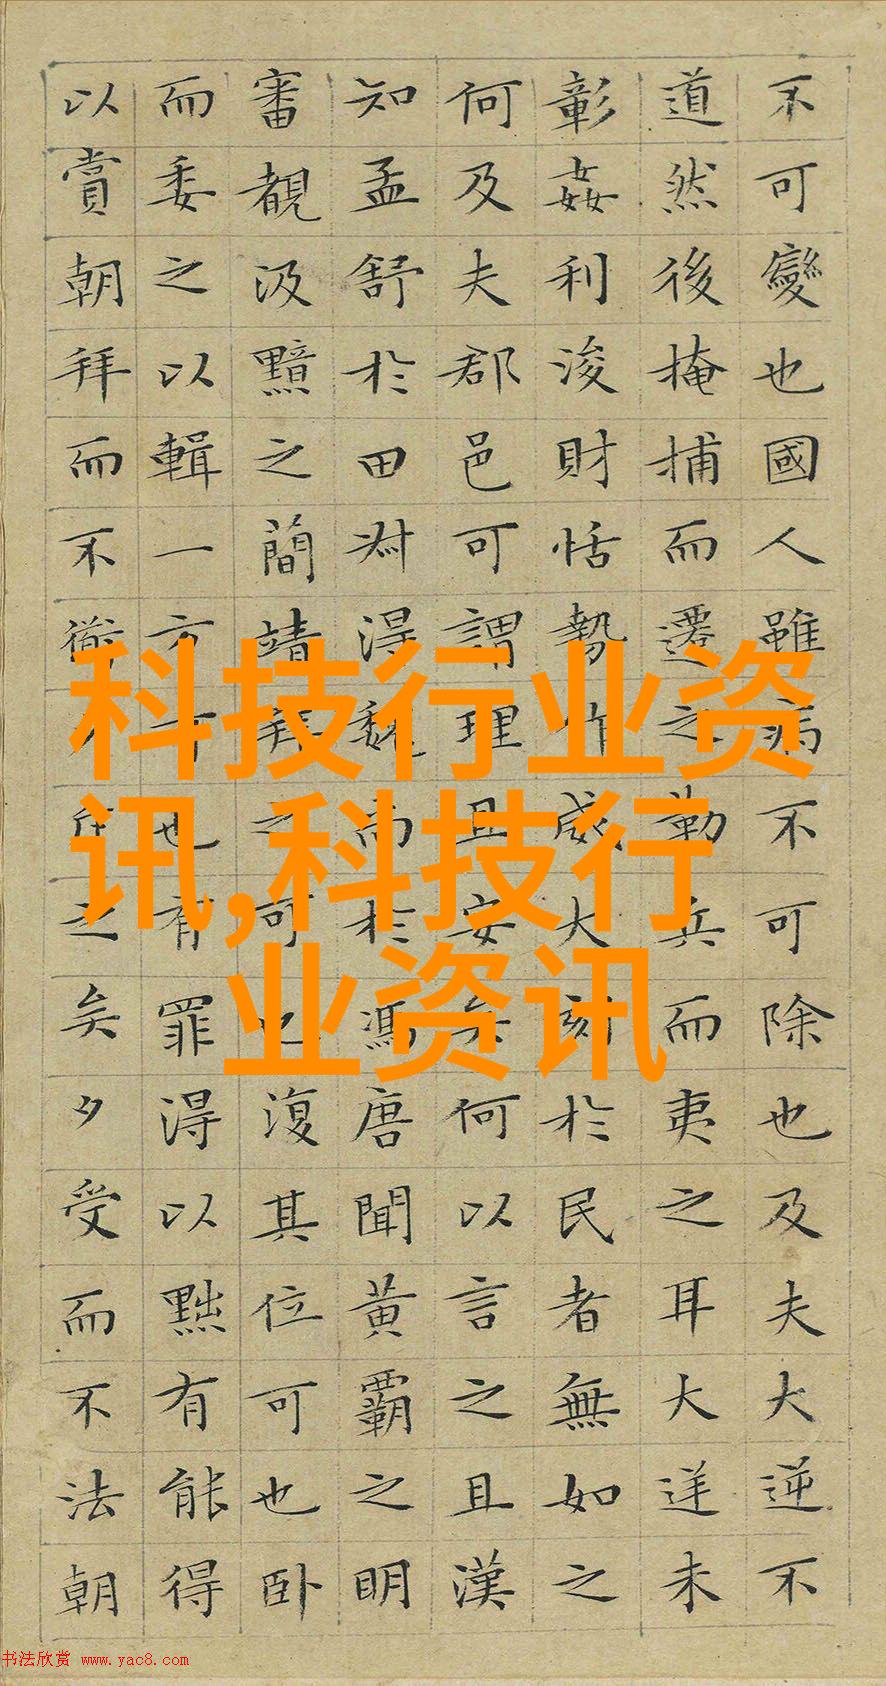 不可變也國人雖病不可除也及夫大逆不
道然後掩捕而遷之勒兵而夷之耳大逆未
彰姦利浚財恬勢作威大刻於民者無如之
何及夫郡邑可謂理且安矣何以言之且漢
知孟舒於田叔得魏尚於馮唐聞黃霸之明
審覩汲黯之簡靖拜之可也復其位可也卧
而委之以輯一方可也有罪得以黜有能得
以賞朝拜而不衜夕斥之矣夕受而不法朝
科技行业资
讯,科技行
业资讯
书法欣赏 www.yac8.com